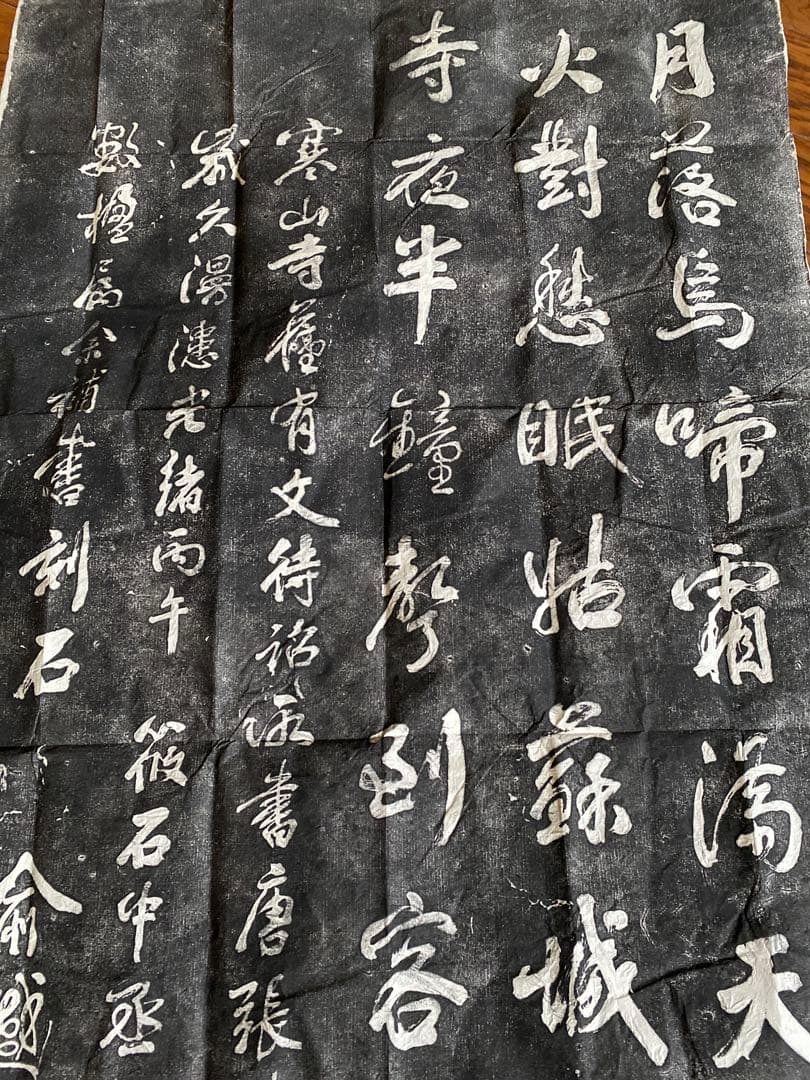 月落烏啼霜滿天
火對愁眠姑蘇城
寺夜半鐘聲到客
寒山寺舊有文待詔所書唐張
歲久漫漶光緒丙午筱石中丞
數楹屬余補書刻石
俞樾